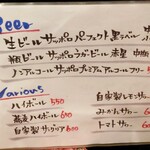 Beer
生ビール サッポロパーフェクト黒ラベル
瓶ビール サッポロラガービール 赤星 中瓶
ノンアルコール サッポロプレミアムアルコールフリー
Various
ハイボール 550
蕎麦ハイボール 690
自家製サングリア 600
自家製レモンサ
みかんサワー
トマトサワー